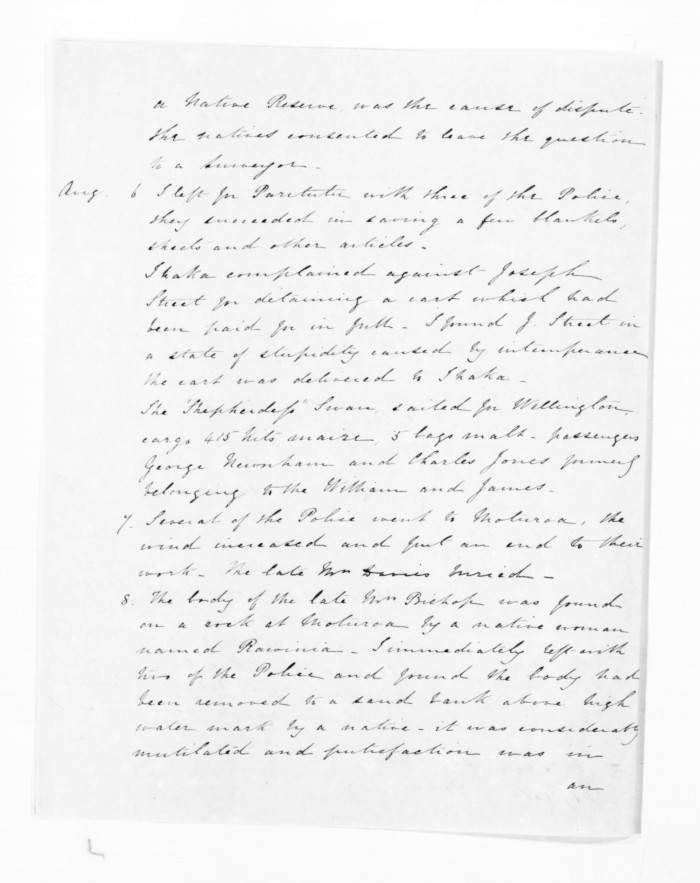 a Native Reserve, was the cause of dispute.
the natives consented to leave the question
to a surveyor.
Aug. 6 I left for Paritutu with three of the Police,
they succeeded in saving a few blankets,
sheets and other articles.
Ihaka complained against Joseph
Street for detaining a cart which had
been paid for in full. I found J. Street in
a state of stupidity caused by intemperance
the cart was delivered to Ihaka.
The "Shepherdess" Swan, sailed for Wellington,
cargo 415 kits maize, 5 bags malt. passengers
George Newnham and Charles Jones formerly
belonging to the William and James.
7. Several of the Police went to Moturoa, the
wind increased and put an end to their
work. The late Mrs Davies buried.
8. The body of the late Mrs Bishop was found
on a rock at Moturoa by a native woman
named Rawinia. I immediately left with
two of the Police and found the body had
been removed to a sand bank above high
water mark by a native. it was considerably
mutilated and putrefaction was in
an